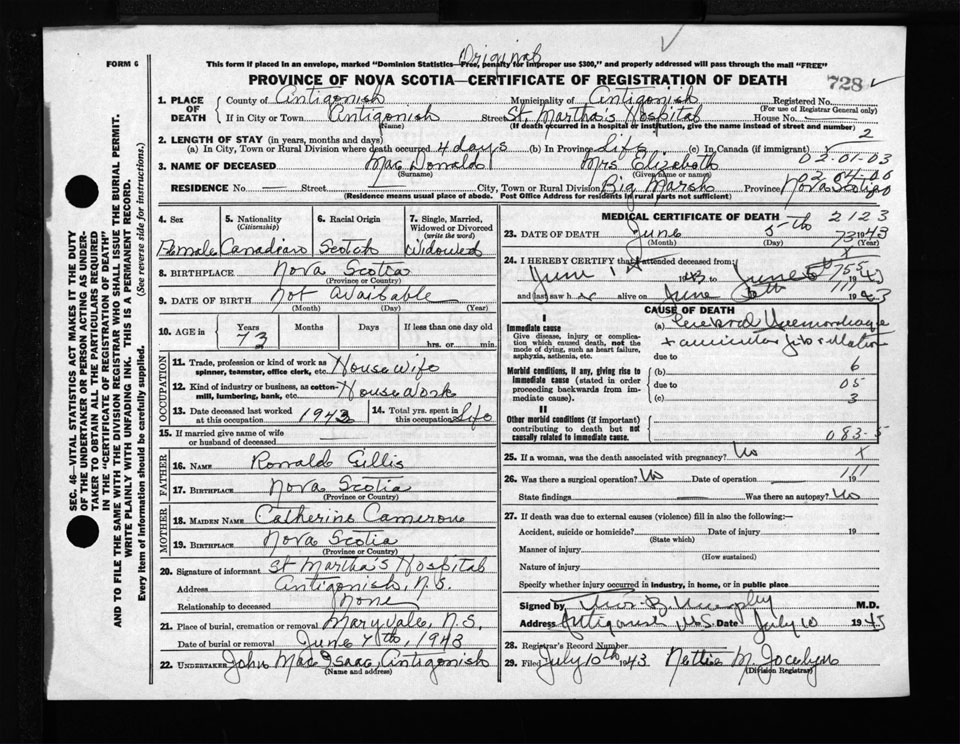 Original
FORM 6
This form if placed in an envelope, marked "Dominion Statistics—Free, penalty for improper use $300," and properly addressed will pass through the mail "FREE"
PROVINCE OF NOVA SCOTIA—CERTIFICATE OF REGISTRATION OF DEATH
728
1. PLACE OF DEATH County of Antigonish Municipality of Antigonish Registered No.
(For use of Registrar General only)
If in City or Town Antigonish Street St. Martha's Hospital House No.
(Name) (If death occurred in a hospital or institution, give the name instead of street and number)
2. LENGTH OF STAY (in years, months and days) 2
(a) In City, Town or Rural Division where death occurred 4 days (b) In Province Life (c) In Canada (if immigrant)
02-01-03
3. NAME OF DECEASED MacDonald Mrs Elizabeth
(Surname) (Given name or names)
02-04-00
RESIDENCE No. — Street — City, Town or Rural Division Big Marsh Province Nova Scotia
(Residence means usual place of abode. Post Office Address for residents in rural parts not sufficient)
4. Sex 5. Nationality (Citizenship) 6. Racial Origin 7. Single, Married, Widowed or Divorced (write the word)
Female Canadian Scotch Widowed
8. BIRTHPLACE Nova Scotia
(Province or Country)
9. DATE OF BIRTH Not Available
(Month) (Day) (Year)
10. AGE in Years Months Days If less than one day old
73 hrs. or min.
OCCUPATION
11. Trade, profession or kind of work as spinner, teamster, office clerk, etc. Housewife
12. Kind of industry or business, as cotton-mill, lumbering, bank, etc. Housework
13. Date deceased last worked at this occupation 1943 14. Total yrs. spent in this occupation Life
15. If married give name of wife or husband of deceased —
FATHER
16. NAME Ronald Gillis
17. BIRTHPLACE Nova Scotia
(Province or Country)
MOTHER
18. MAIDEN NAME Catherine Cameron
19. BIRTHPLACE Nova Scotia
(Province or Country)
20. Signature of informant St Martha's Hospital
Address Antigonish, N.S.
Relationship to deceased None
21. Place of burial, cremation or removal Maryvale, N.S.
Date of burial or removal June 7th, 1943
22. UNDERTAKER John MacIsaac, Antigonish
(Name and address)
MEDICAL CERTIFICATE OF DEATH 2123
23. DATE OF DEATH June 5th 1943
(Month) (Day) (Year)
73
24. I HEREBY CERTIFY that I attended deceased from: x
June 1st 1943 June 5th 1943
755
and last saw her alive on June 5th 1943
111
CAUSE OF DEATH
I
Immediate cause
Give disease, injury or complication which caused death, not the mode of dying, such as heart failure, asphyxia, asthenia, etc.
(a) Cerebral Haemorrhage
+ auricular fibrillation
due to
Morbid conditions, if any, giving rise to immediate cause (stated in order proceeding backwards from immediate cause).
(b) 6
due to 05
(c) 3
II
Other morbid conditions (if important) contributing to death but not causally related to immediate cause.
083-5
25. If a woman, was the death associated with pregnancy? No x
26. Was there a surgical operation? No Date of operation — 111
State findings Was there an autopsy? No
27. If death was due to external causes (violence) fill in also the following:—
Accident, suicide or homicide? Date of injury 19
(State which)
Manner of injury
(How sustained)
Nature of injury
Specify whether injury occurred in industry, in home, or in public place
Signed by B. Murphy M.D.
Address Antigonish N.S. Date July 10 1943
28. Registrar's Record Number
29. Filed July 10th 1943 Nettie M.
(Division Registrar)
SEC. 46—VITAL STATISTICS ACT MAKES IT THE DUTY
OF THE UNDERTAKER OR PERSON ACTING AS UNDER-
TAKER TO OBTAIN ALL THE PARTICULARS REQUIRED
IN THE "CERTIFICATE OF REGISTRATION OF DEATH"
AND TO FILE THE SAME WITH THE DIVISION REGISTRAR WHO SHALL ISSUE THE BURIAL PERMIT.
WRITE PLAINLY WITH UNFADING INK. THIS IS A PERMANENT RECORD.
Every item of information should be carefully supplied. (See reverse side for instructions.)